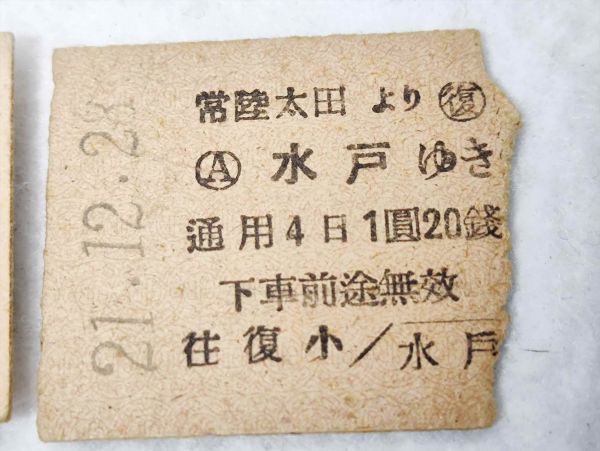 常陸太田 より ㊝復
Ⓐ 水戸ゆき
通用4日1圓20錢
下車前途無效
往復小/水戸
21.12.28